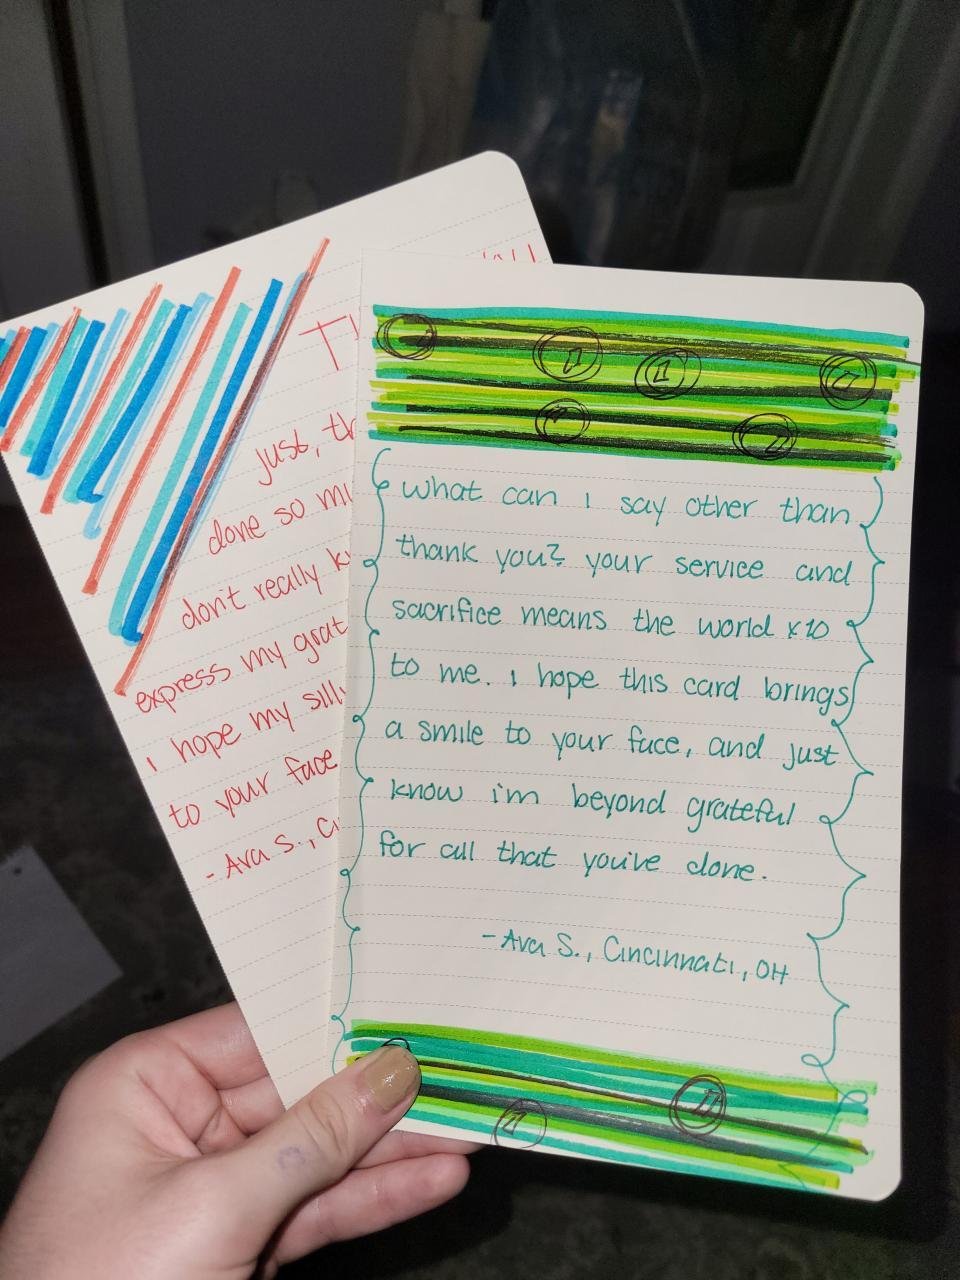 just, th
done so mu
don't really k
express my grat
i hope my sill
to your face
- Ava S., Ci
what can i say other than
thank you? your service and
sacrifice means the world x10
to me. i hope this card brings
a smile to your face, and just
know i'm beyond grateful
for all that you've done.
- Ava S., Cincinnati, OH